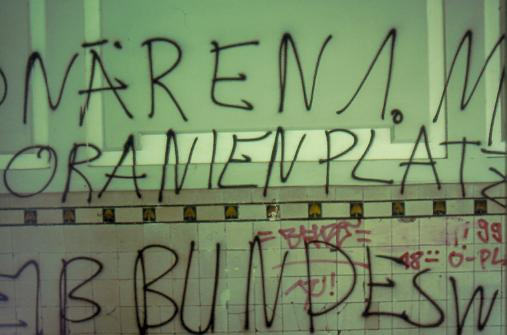 ONÄREN 1. M
ORANIENPLATZ
EMB BUNDESW
!! 99
18:: O-PL